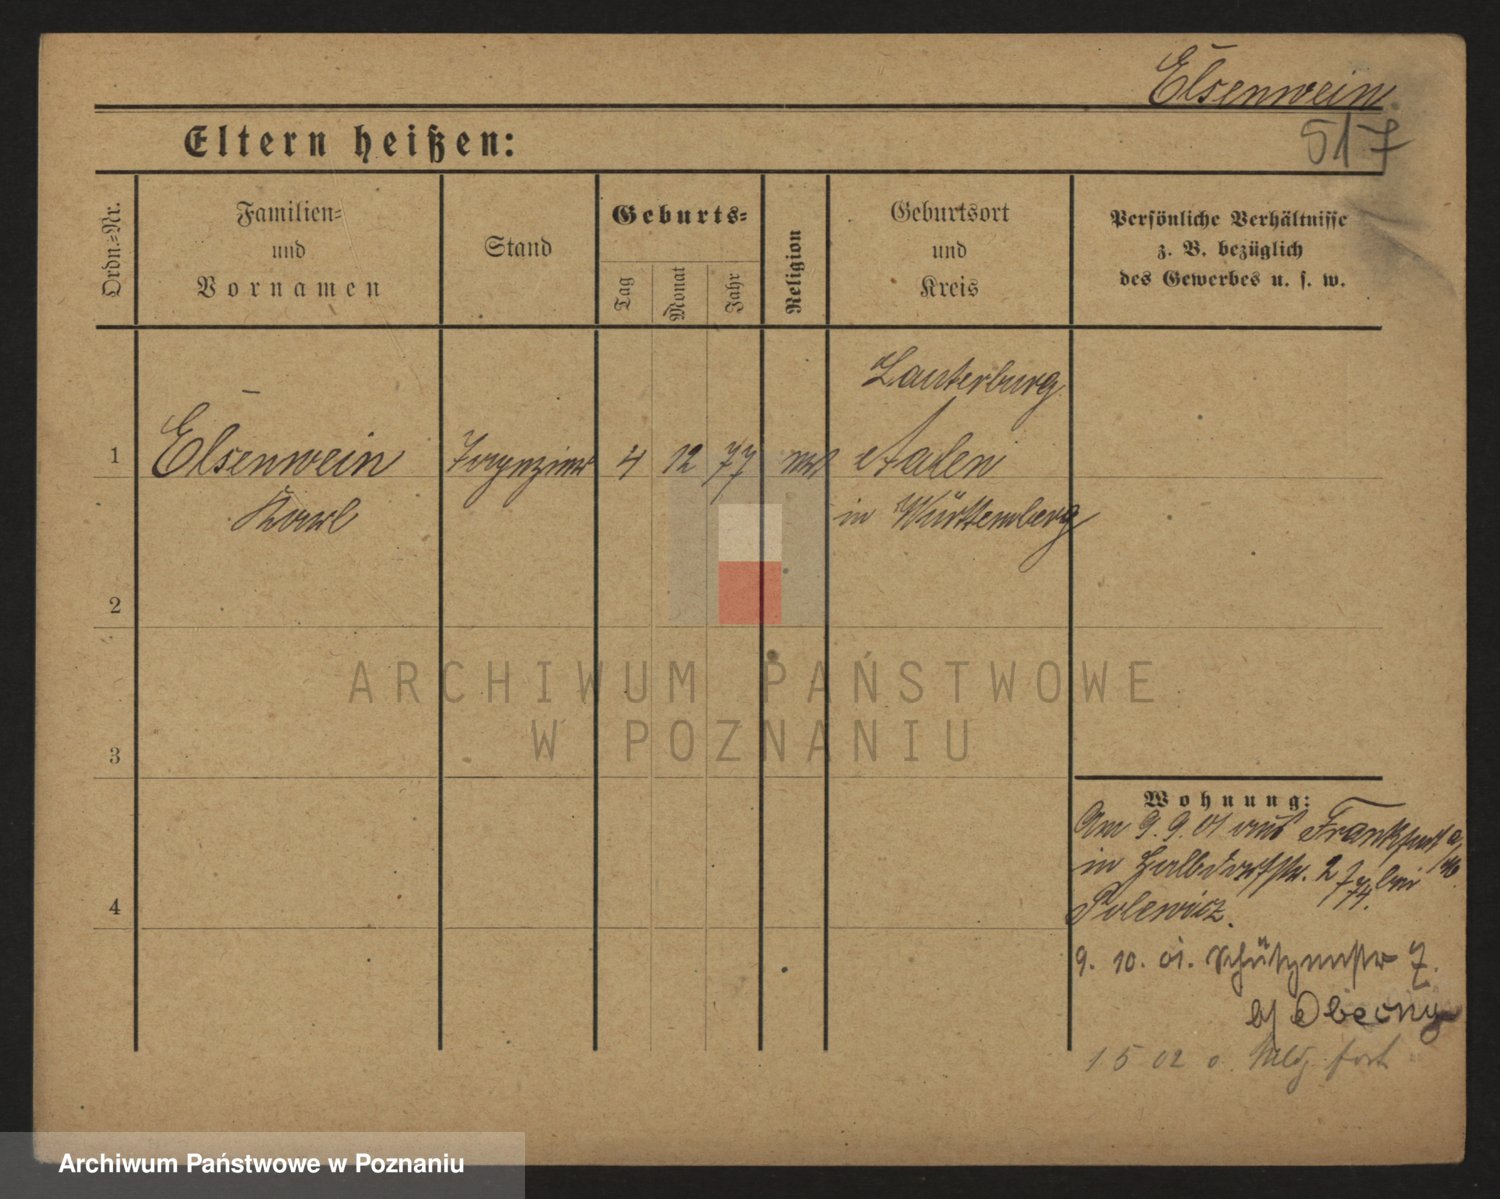 Elsenwein
517
Eltern heißen:
Ordn.=Nr.
Familien=
und
Vornamen
Stand
Geburts=
Tag
Monat
Jahr
Religion
Geburtsort
und
Kreis
Persönliche Verhältnisse
z. B. bezüglich
des Gewerbes u. s. w.
Lauterburg
1 Elsenwein 4 12 77 Aalen
Karl in Württemberg
2
3
4
ARCHIWUM PAŃSTWOWE
W POZNANIU
Wohnung:
Am 9. 9. 01 aus Frankfurt a/M.
in Halbdorfstr. 27 bei
Polewicz.
9. 10. 01. Schützenstr 7.
b/ Obecny
1 5 02 o. Meldg. fort
Archiwum Państwowe w Poznaniu